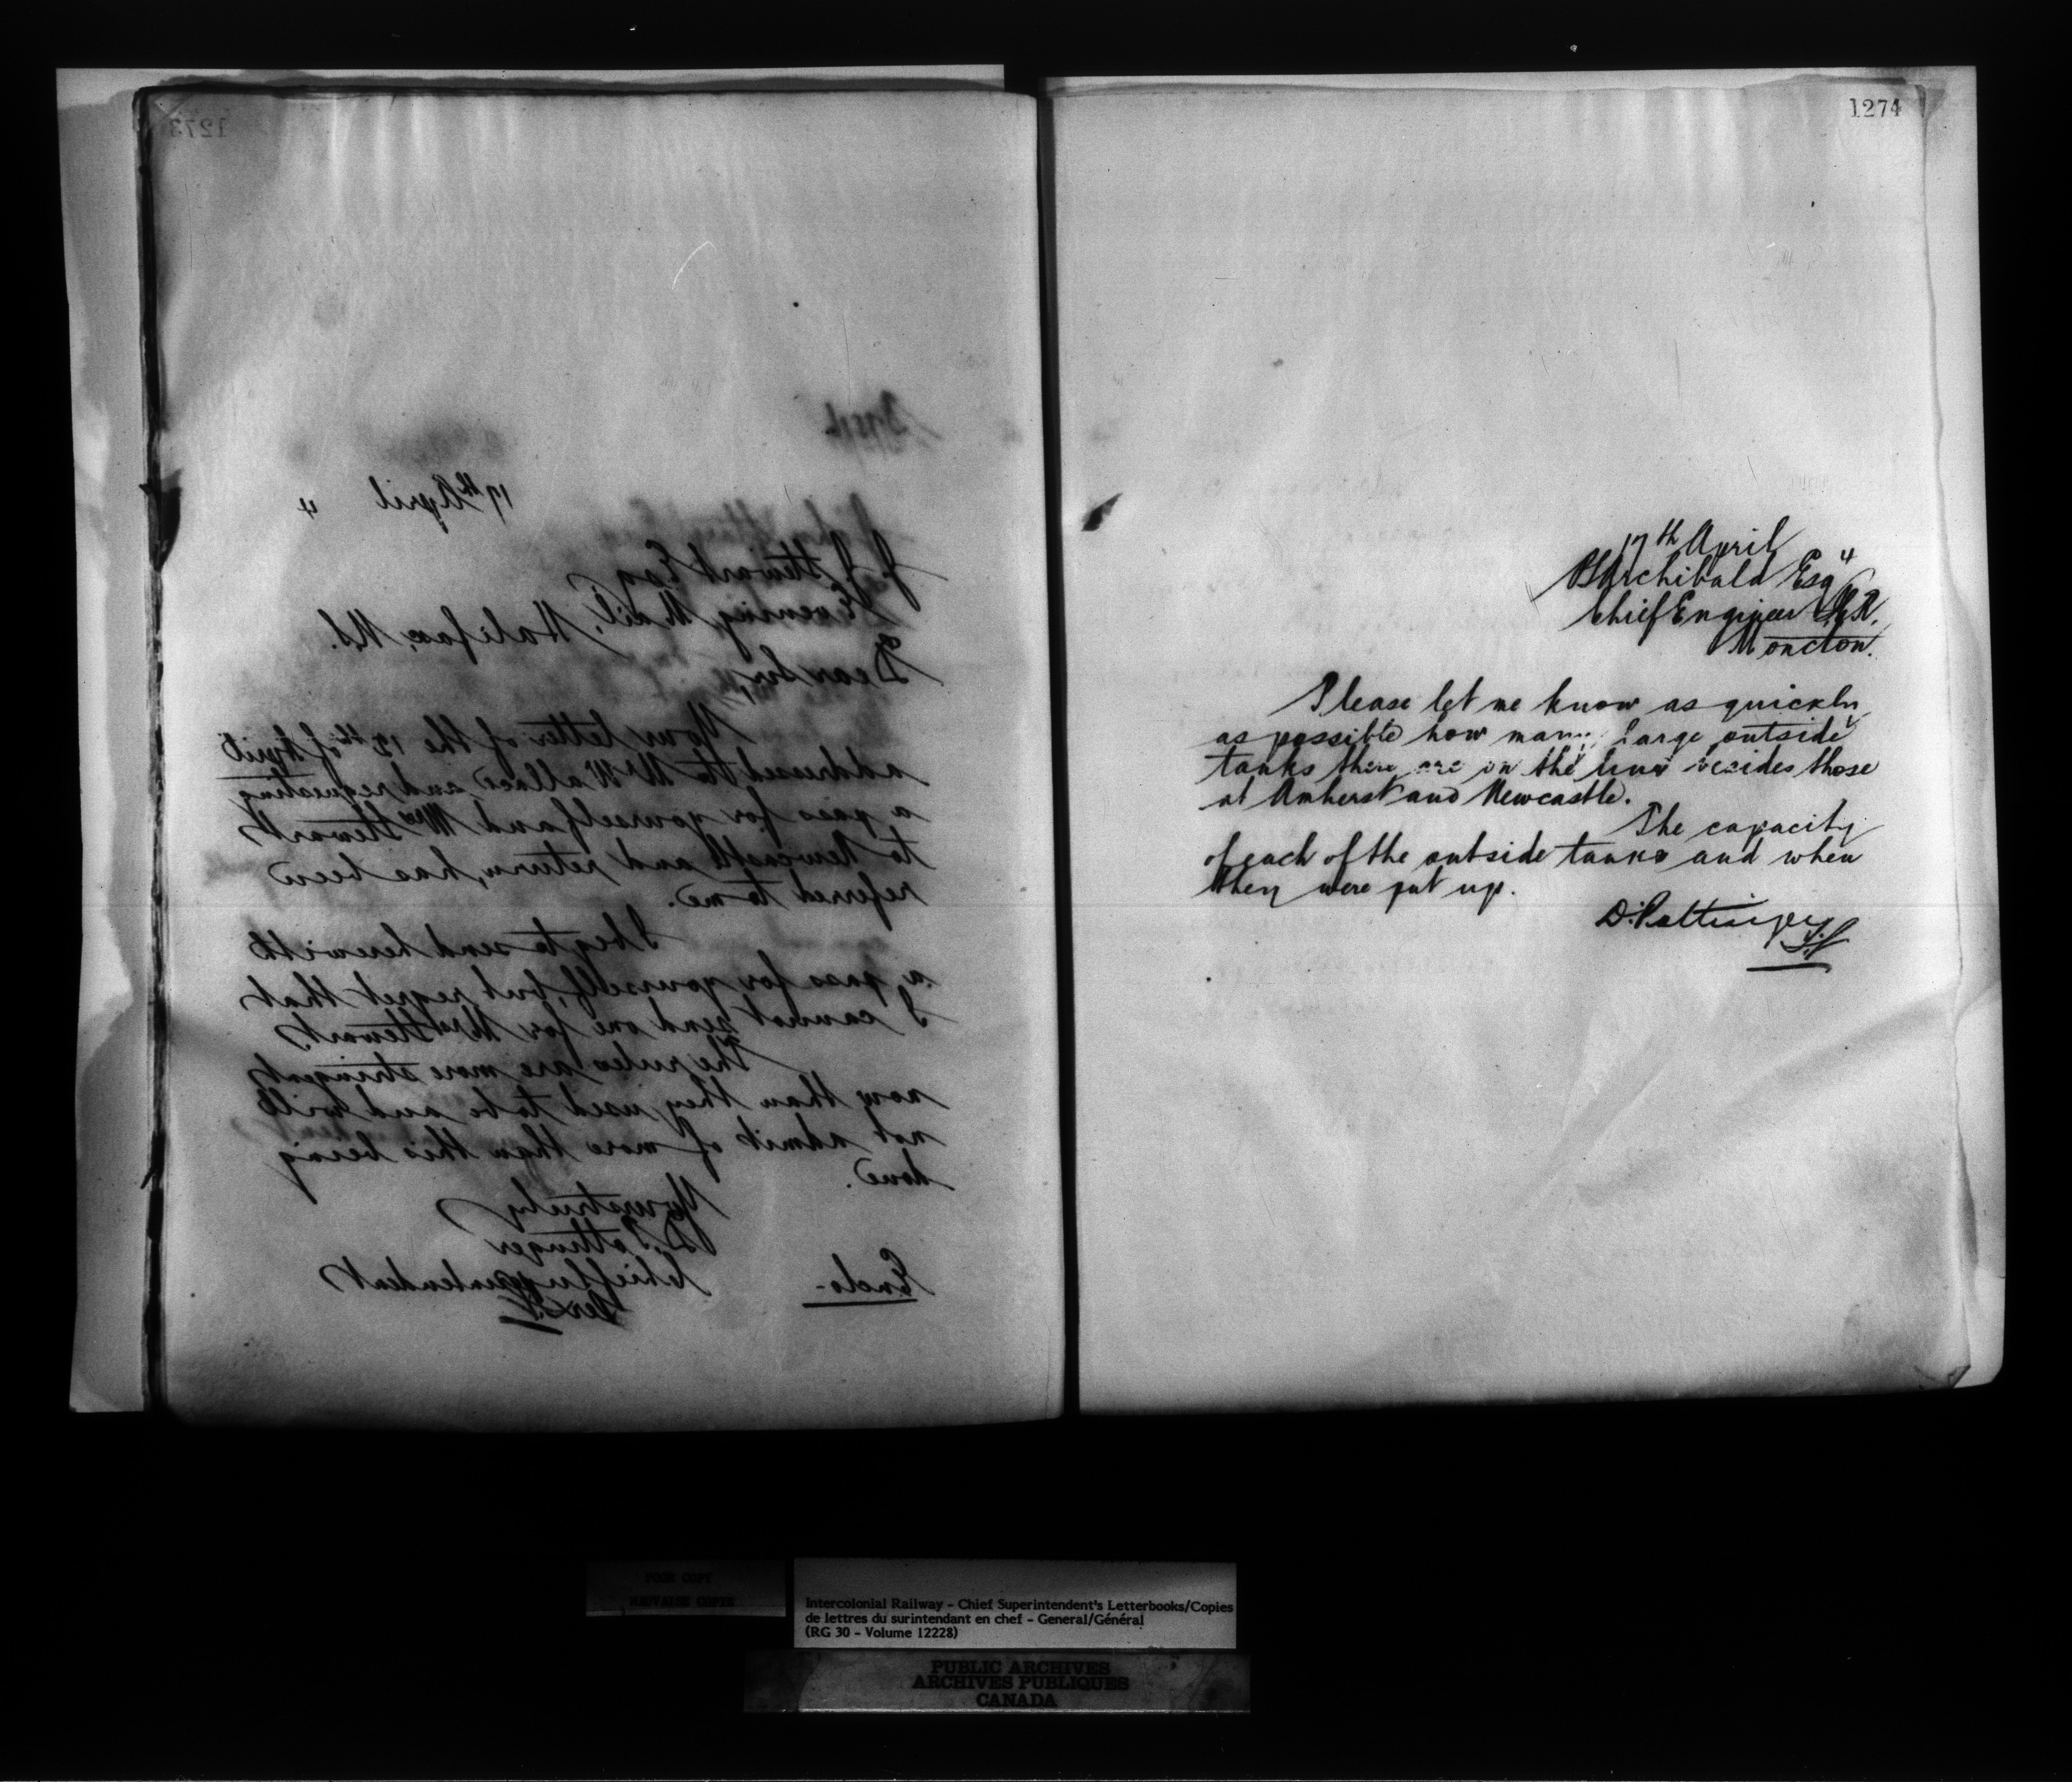 1273
17th April 4
J. J. Stewart Esq
"Evening Mail", Halifax, N.S.
Dear Sir,
Your letter of the 15th of April
addressed to Mr Wallace and requesting
a pass for yourself and Mrs Stewart
to Newcastle and return, has been
referred to me.
I beg to send herewith
a pass for yourself, but regret that
I cannot send one for Mrs Stewart.
The rules are more stringent
now than they used to be and will
not admit of more than this being
done.
Yours truly
D. Pottinger
Chief Superintendent
Enclo-
1274
17th April 4
P S Archibald Esq
Chief Engineer I.C.R.
Moncton.
Please let me know as quickly
as possible how many large outside
tanks there are on the line besides those
at Amherst and Newcastle.
The capacity
of each of the outside tanks and when
they were put up.
D. Pottinger
POOR COPY
MAUVAISE COPIE
Intercolonial Railway - Chief Superintendent's Letterbooks/Copies
de lettres du surintendant en chef - General/Général
(RG 30 - Volume 12228)
PUBLIC ARCHIVES
ARCHIVES PUBLIQUES
CANADA